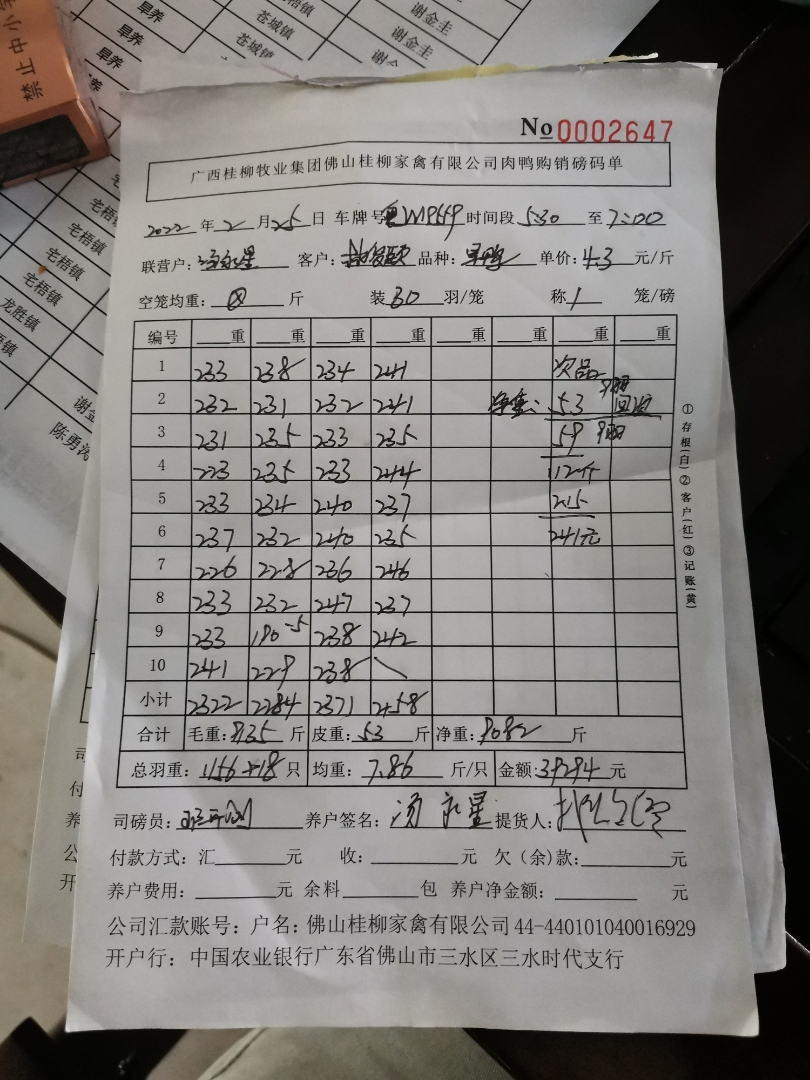 早养
早养
苍城镇
苍城镇
谢金圭
谢金圭
禁止中小学
宅梧镇
宅梧镇
宅梧镇
宅梧镇
龙胜镇
谢金
陈勇涛
No 0002647
广西桂柳牧业集团佛山桂柳家禽有限公司肉鸭购销磅码单
2022 年 2 月 25 日 车牌号 时间段 5:30 至 7:00
联营户: 客户: 品种: 单价: 4.3 元/斤
空笼均重: 斤 装 30 羽/笼 称 1 笼/磅
编号 重 重 重 重 重 重 重 重
1 233 238 234 241 次品
2 232 231 232 241 净重: 53 9羽 回收
3 231 235 233 235 59 9羽
4 223 235 233 244 112斤
5 233 234 240 237 2.15
6 237 232 240 235 241元
7 226 228 236 246
8 233 232 247 237
9 233 190-5 238 242
10 241 229 238 \
小计 2322 2284 2371 2158
合计 毛重: 9135 斤 皮重: 53 斤 净重: 9082 斤
总羽重: 1156+18 只 均重: 7.86 斤/只 金额: 39294 元
司磅员: 养户签名: 汤永星 提货人:
付款方式: 汇 元 收: 元 欠(余)款: 元
养户费用: 元 余料 包 养户净金额: 元
公司汇款账号: 户名: 佛山桂柳家禽有限公司 44-440101040016929
开户行: 中国农业银行广东省佛山市三水区三水时代支行
①存根(白)②客户(红)③记账(黄)